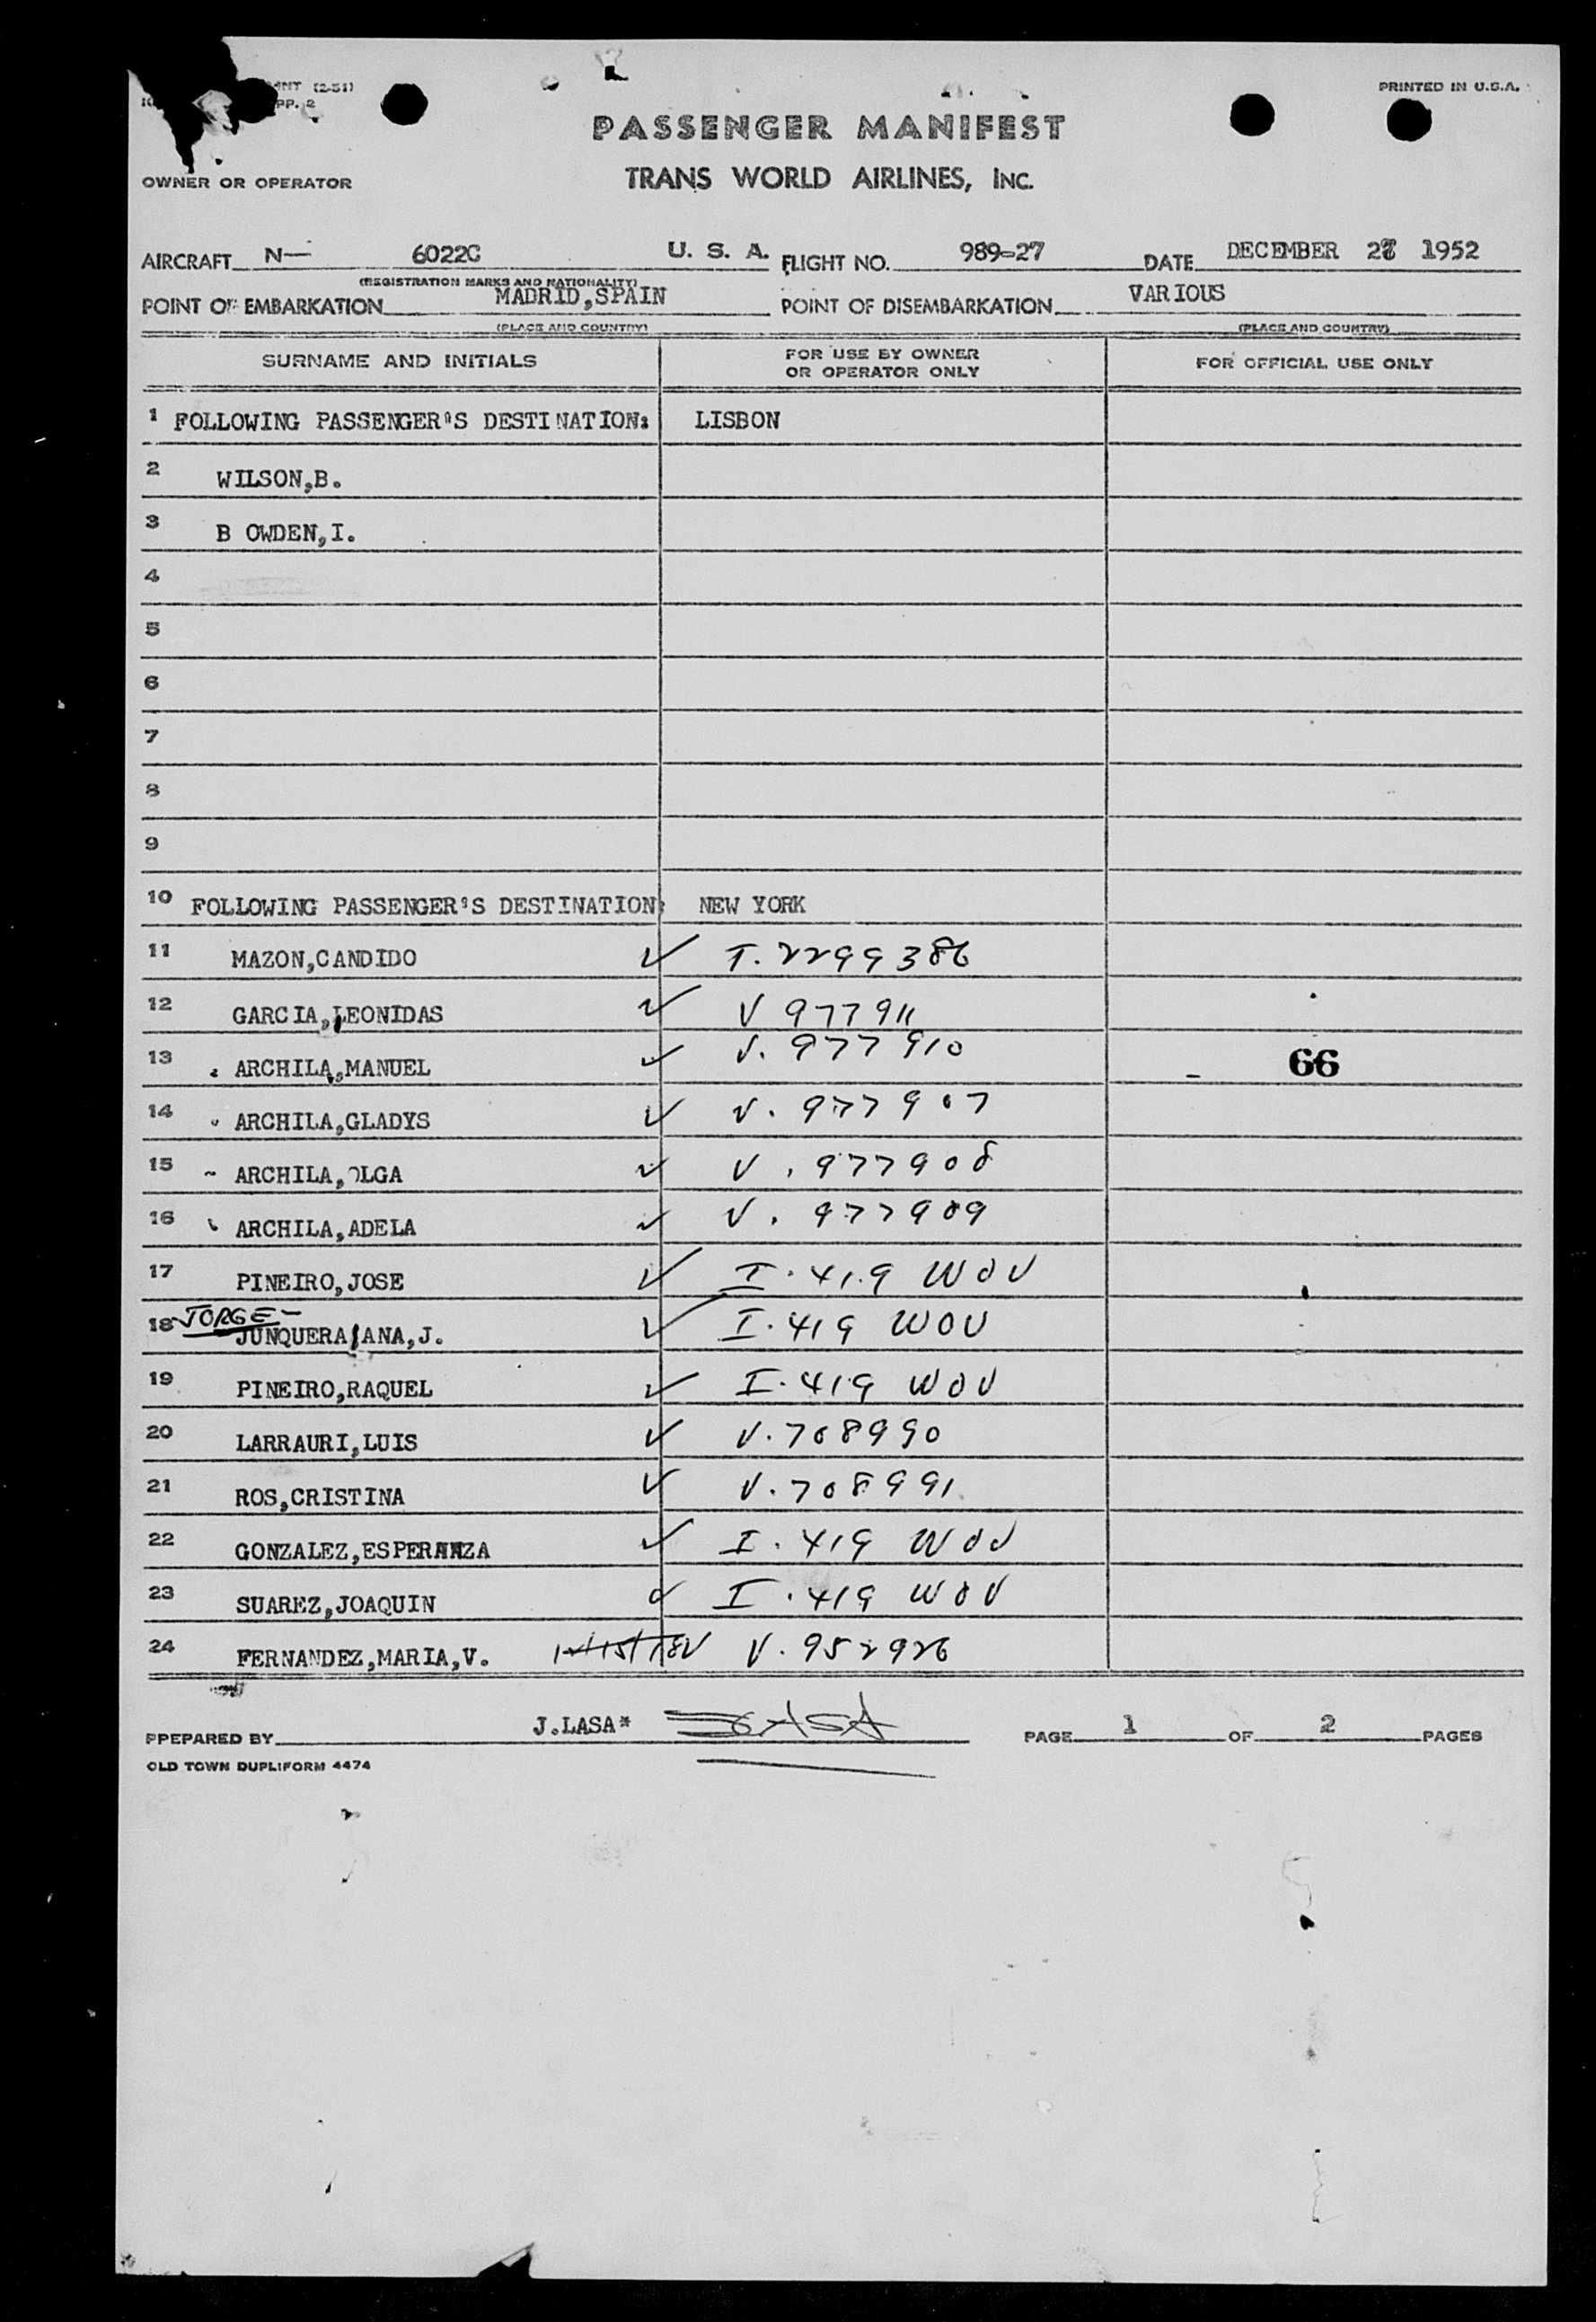 (2-51)
PP. 2
PRINTED IN U.S.A.
PASSENGER MANIFEST
OWNER OR OPERATOR TRANS WORLD AIRLINES, INC.
AIRCRAFT N— 6022C U. S. A. FLIGHT NO. 989-27 DATE DECEMBER 27 1952
(REGISTRATION MARKS AND NATIONALITY)
POINT OF EMBARKATION MADRID,SPAIN POINT OF DISEMBARKATION VARIOUS
(PLACE AND COUNTRY) (PLACE AND COUNTRY)
SURNAME AND INITIALS FOR USE BY OWNER OR OPERATOR ONLY FOR OFFICIAL USE ONLY
1 FOLLOWING PASSENGER'S DESTINATION: LISBON
2 WILSON,B.
3 B OWDEN,I.
4
5
6
7
8
9
10 FOLLOWING PASSENGER'S DESTINATION: NEW YORK
11 MAZON,CANDIDO ✓ T. 2299386
12 GARCIA,LEONIDAS ✓ V 977911
13 ARCHILA,MANUEL ✓ V. 977910 66
14 ARCHILA,GLADYS ✓ V. 977907
15 ARCHILA,OLGA ✓ V. 977908
16 ARCHILA,ADELA ✓ V. 977909
17 PINEIRO,JOSE ✓ I. 419 WOV
18 JORGE- JUNQUERA/ANA,J. ✓ I. 419 WOV
19 PINEIRO,RAQUEL ✓ I. 419 WOV
20 LARRAURI,LUIS ✓ V. 708990
21 ROS,CRISTINA ✓ V. 708991
22 GONZALEZ,ESPERANZA ✓ I. 419 WOV
23 SUAREZ,JOAQUIN ✓ I. 419 WOV
24 FERNANDEZ,MARIA,V. V. 952926
PREPARED BY J.LASA* LASA PAGE 1 OF 2 PAGES
OLD TOWN DUPLIFORM 4474